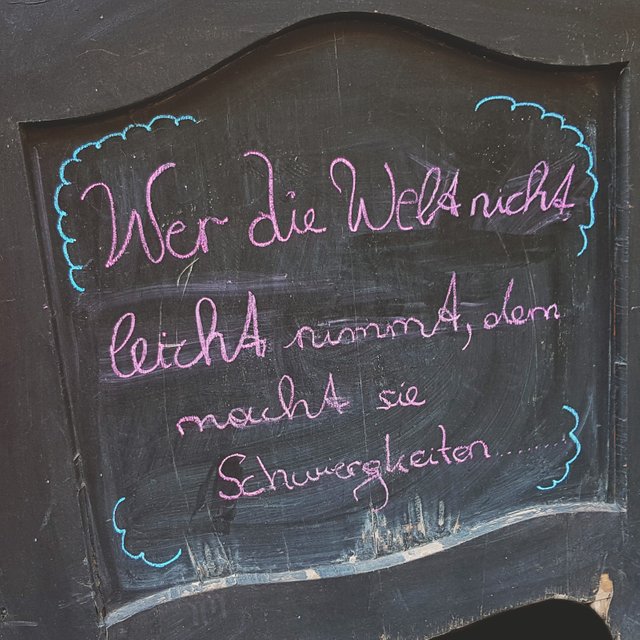 Wer die Welt nicht
leicht nimmt, dem
macht sie
Schwiergkeiten..........